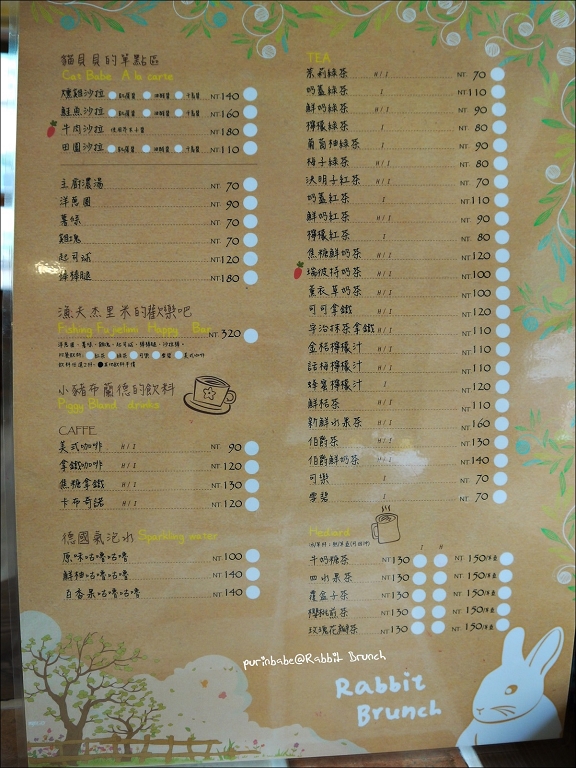 貓貝貝的單點區
Cat Babe A la carte
燻雞沙拉 NT 140
鮭魚沙拉 NT 160
牛肉沙拉 NT 180
田園沙拉 NT 110
主廚濃湯 NT 70
洋蔥圈 NT 90
薯條 NT 70
雞塊 NT 70
起司球 NT 120
棒棒腿 NT 180
漁夫杰里米的歡樂吧
Fishing Fujielimi Happy Bar
NT 320
小豬布蘭德的飲料
Piggy Bland drinks
CAFFE
美式咖啡 H / I NT 90
拿鐵咖啡 H / I NT 120
焦糖拿鐵 H / I NT 130
卡布奇諾 H / I NT 120
德國氣泡水 Sparkling water
原味咕嚕咕嚕 NT 100
鮮柚咕嚕咕嚕 NT 140
百香果咕嚕咕嚕 NT 140
TEA
茉莉綠茶 H / I NT 70
奶蓋綠茶 I NT 110
鮮奶綠茶 H / I NT 90
檸檬綠茶 I NT 80
葡萄柚綠茶 I NT 90
梅子綠茶 H / I NT 80
決明子紅茶 H / I NT 70
奶蓋紅茶 I NT 110
鮮奶紅茶 H / I NT 90
檸檬紅茶 I NT 80
焦糖鮮奶茶 H / I NT 120
瑞彼特奶茶 H / I NT 100
薰衣草奶茶 H / I NT 100
可可拿鐵 H / I NT 120
宇治抹茶拿鐵 H / I NT 110
金桔檸檬汁 H / I NT 110
話梅檸檬汁 H / I NT 110
蜂蜜檸檬汁 H / I NT 120
鮮桔茶 H / I NT 110
新鮮水果茶 H / I NT 160
伯爵茶 H / I NT 130
伯爵鮮奶茶 H / I NT 140
可樂 I NT 70
雪碧 I NT 70
I H
牛奶糖茶 NT 130 NT 150/壺
四水果茶 NT 130 NT 150/壺
覆盆子茶 NT 130 NT 150/壺
櫻桃煎茶 NT 130 NT 150/壺
玫瑰花瓣茶 NT 130 NT 150/壺
purinbabe@Rabbit Brunch
Rabbit
Brunch